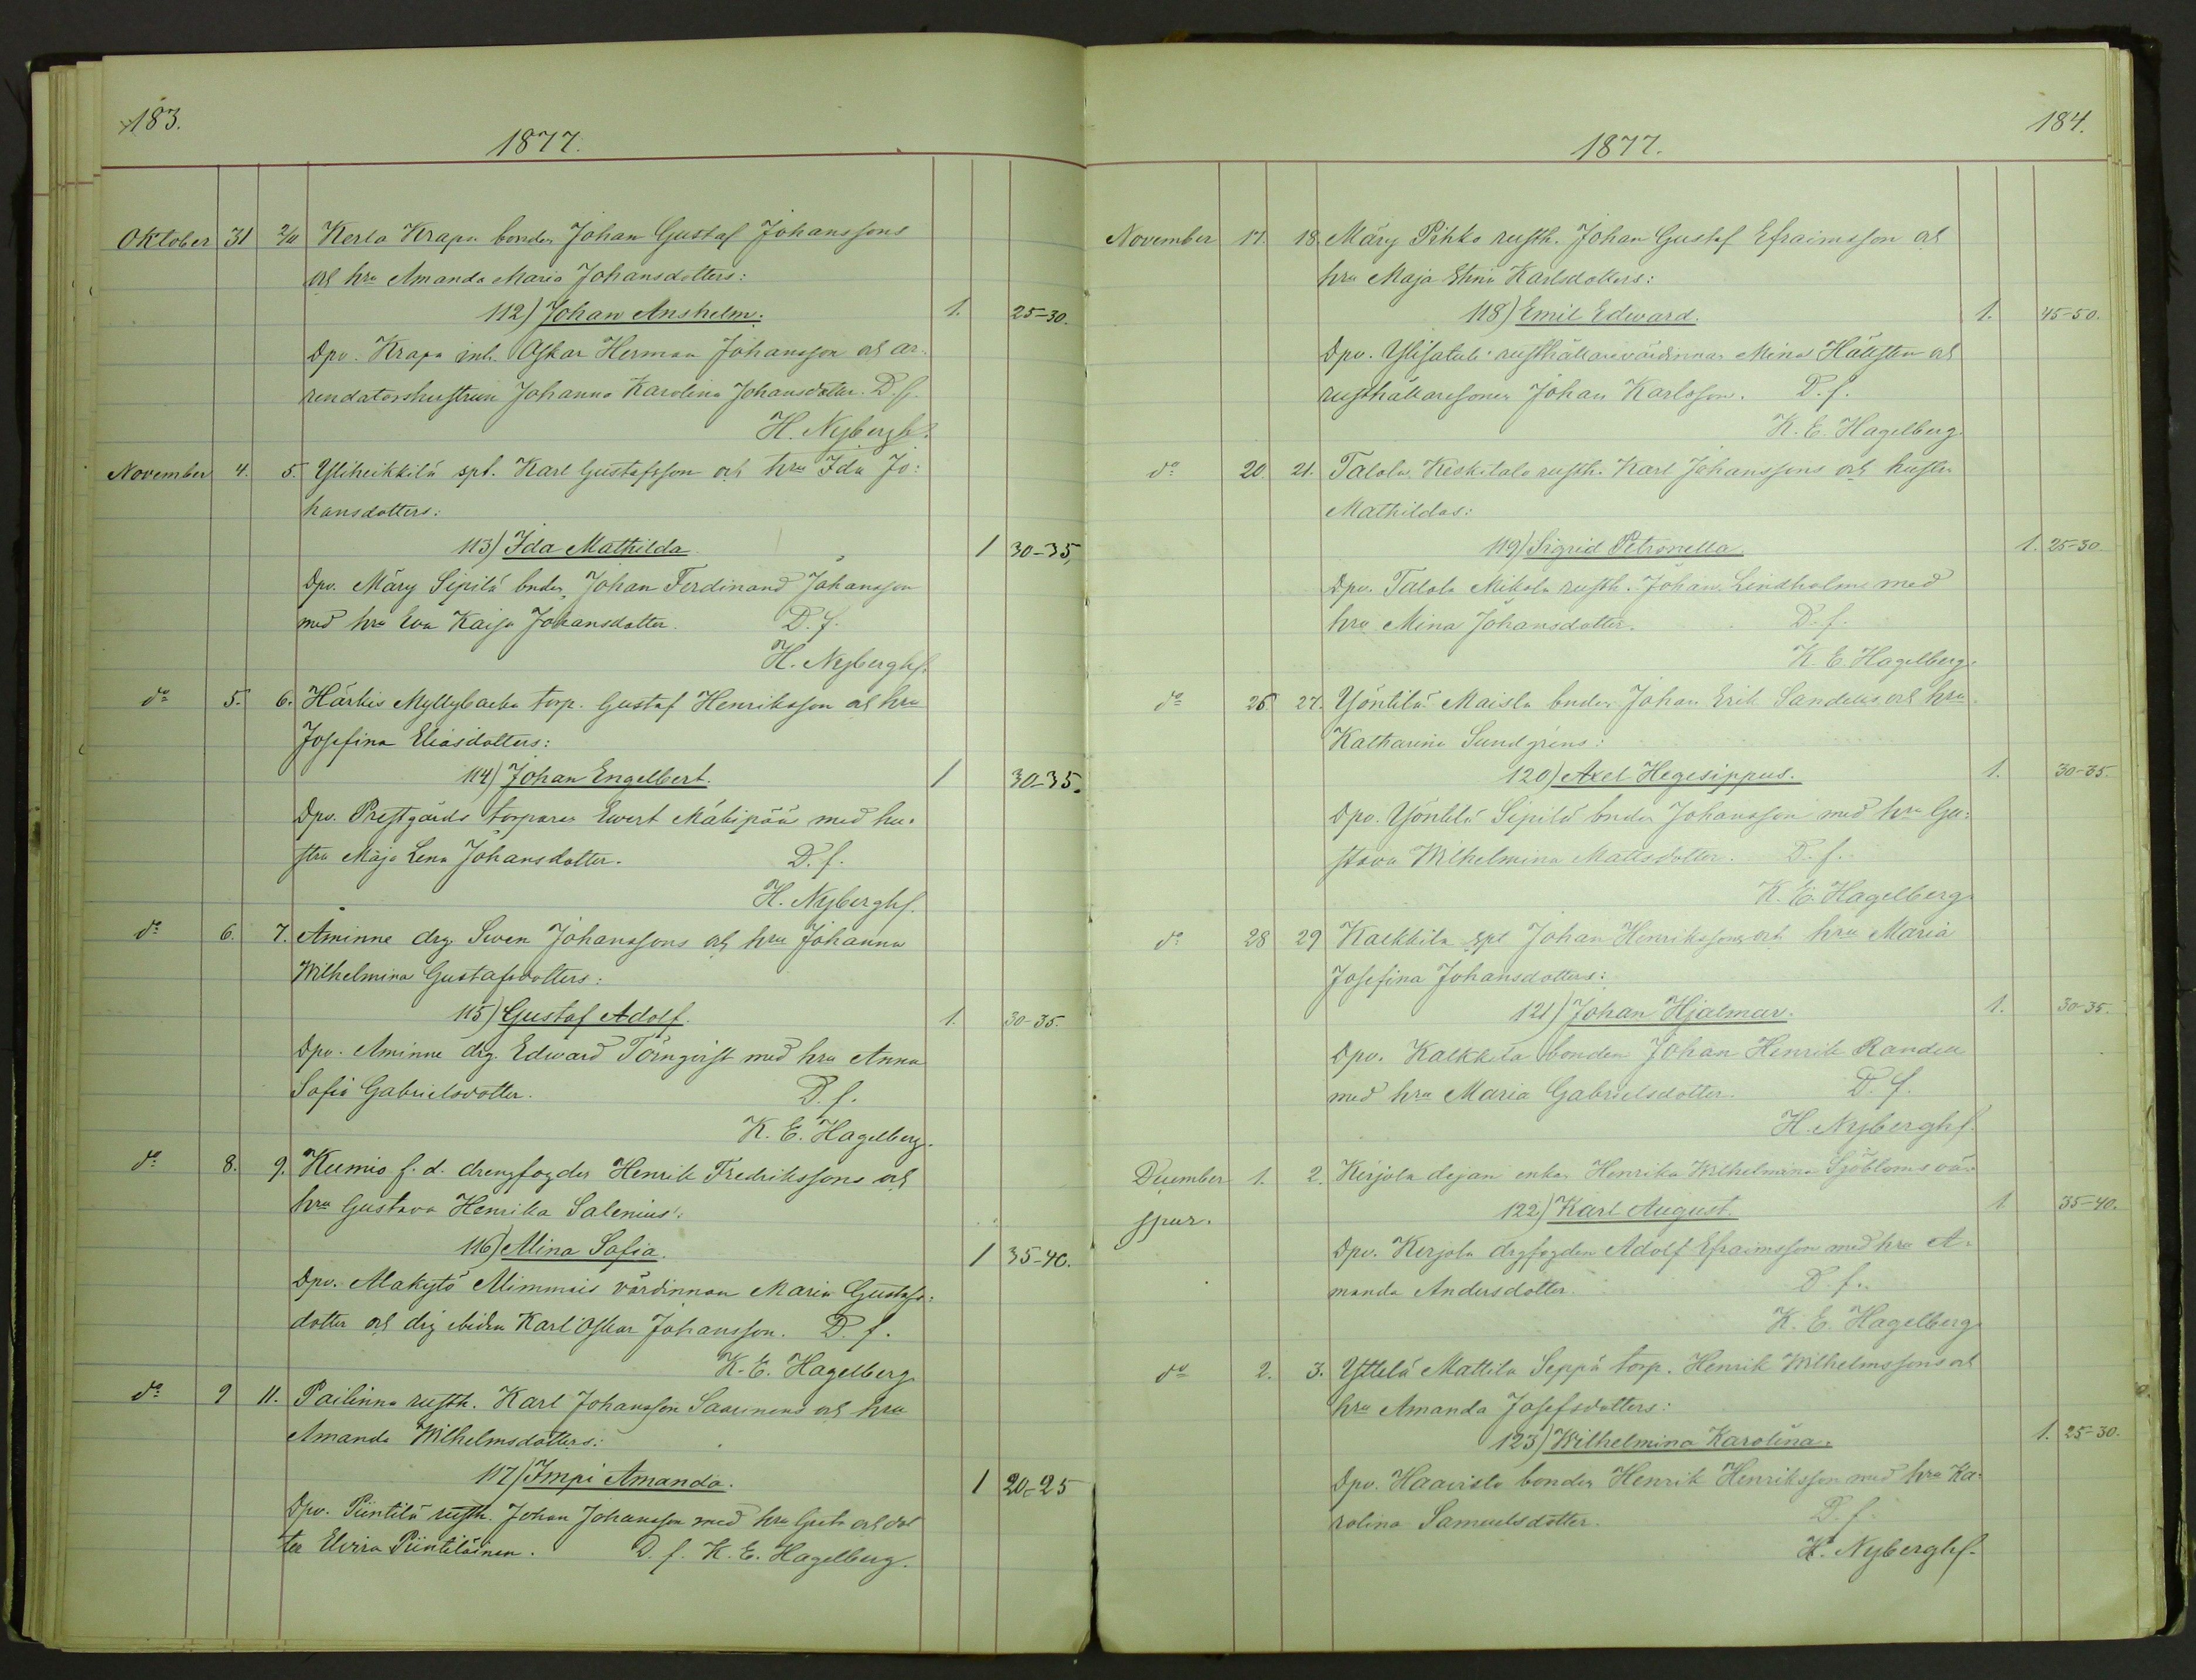 183.
1877.
Oktober 31 2/11 Kerla Krapu bonden Johan Gustaf Johanssons
och hru Amanda Maria Johansdotters:
112) Johan Anshelm. 1. 25-30.
Dpv. Krapu inh. Oskar Herman Johansson och ar-
rendatorshustrun Johanna Karolina Johansdotter. D. f.
H. Nybergh.
November 4. 5. Yliheikkilä spt. Karl Gustafsson och hru Ida Jo:
hansdotters:
113) Ida Mathilda 1 30-35,
Dpv. Märy Sipilä bnden Johan Ferdinand Johansson
med hru Eva Kaisa Johansdotter. D. f.
H. Nyberghf.
do 5. 6. Härkis Myllybacka torp. Gustaf Henriksson och hru
Josefina Eliasdotters:
114) Johan Engelbert. 1 30-35.
Dpv. Prestgårds torparen Evert Mäkipää med hu-
stru Maja Lena Johansdotter. D. f.
H. Nyberghf.
do 6. 7. Åminne drg. Sven Johanssons och hru Johanna
Wilhelmina Gustafsdotters:
115) Gustaf Adolf. 1. 30-35.
Dpv. Åminne drg. Edward Törnqvist med hru Anna
Sofia Gabrielsdotter. D. f.
K. E. Hagelberg.
do 8. 9. Kumio f. d. drengfogden Henrik Fredrikssons och
hru Gustava Henrika Salenius':
116) Mina Sofia. 1 35-40.
Dpv. Alakytö Mimmais värdinnan Maria Gustafs:
dotter och drg ibiden Karl Oskar Johansson. D. f.
K. E. Hagelberg
do 9 11. Pailinna rusth. Karl Johansson Saarinens och hru
Amanda Wilhelmsdotters:
117) Impi Amanda. 1 20-25
Dpv. Piintilä rusth. Johan Johansson med hru Greta och dot
ter Elvira Piintiläinen. D. f. K. E. Hagelberg.
184.
1877.
November 17. 18. Märy Pihko rusth. Johan Gustaf Efraimsson och
hru Maja Stina Karlsdotters:
118) Emil Edward. 1. 45-50.
Dpv. Ylisatul rusthållarevärdinnan Mina Hällsten och
rusthållaresonen Johan Karlsson. D. f.
K. E. Hagelberg
do 20. 21. Talola Keskitalo rusth. Karl Johanssons och hustru
Mathildas:
119) Sigrid Petronella 1. 25-30.
Dpv. Talola Mikola rusth. Johan Lindholm med
hru Mina Johansdotter. D. f.
K. E. Hagelberg.
do 26 27. Yöntilä Maisla bnden Johan Erik Sandells och hru
Katharina Sundgréns:
120) Axel Hegesippus. 1. 30-35.
Dpv. Yöntilä Sipilä bnden Johansson med hru Gu:
stava Wilhelmina Mattsdotter. D. f.
K. E. Hagelberg
do 28 29 Kalkkila spt Johan Henrikssons och hru Maria
Josefina Johansdotters:
121) Johan Hjalmar. 1. 30-35.
Dpv. Kalkkila bonden Johan Henrik Randell
med hru Maria Gabrielsdotter. D. f.
H. Nyberghf.
December 1. 2. Kirjola dejan enkan Henrika Wilhelmina Sjöbloms oäk
spur. 122) Karl August. 1 35-40.
Dpv. Kerjola drgfogden Adolf Efraimsson med hru A-
manda Andersdotter. D. f.
K. E. Hagelberg
do 2. 3. Yttelä Mattila Seppä torp. Henrik Wilhelmssons och
hru Amanda Josefsdotters:
123) Wilhelmina Karolina. 1. 25-30.
Dpv. Haavisto bonden Henrik Henriksson med hru Ka-
rolina Samuelsdotter. D. f.
H. Nyberghf.